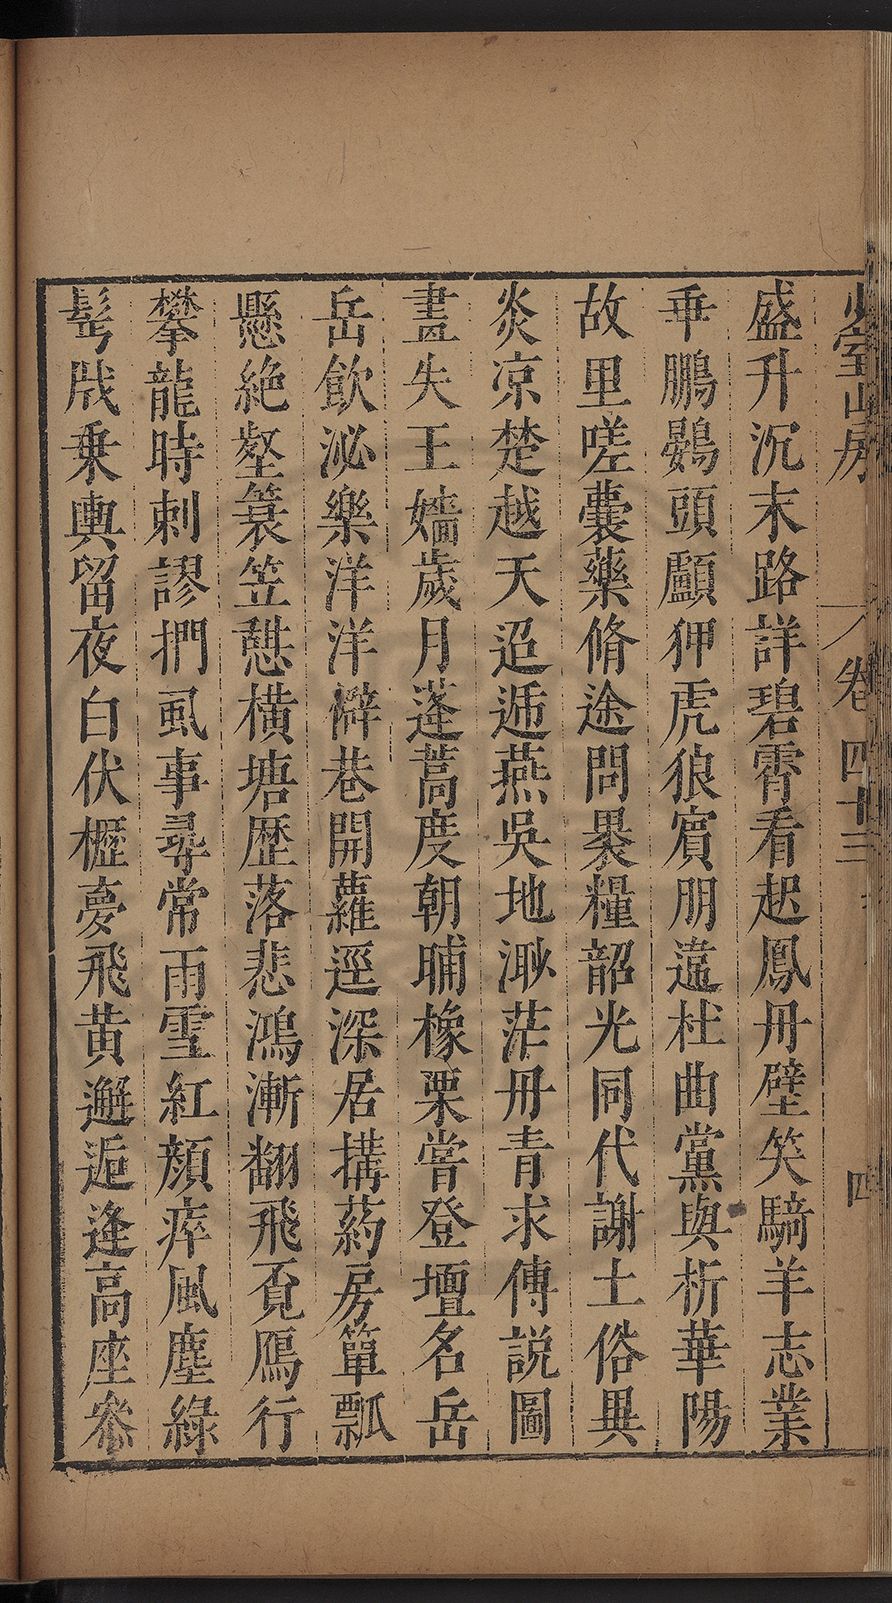 少室山房 卷四十三 四
盛升沉末路詳碧霄看起鳳丹壁笑騎羊志業
垂鵬鷃頭顱狎虎狼賓朋遠杜曲黨與析華陽
故里嗟囊藥脩途問褁糧韶光同代謝土俗異
炎凉楚越天迢遞燕吳地渺茫丹青求傳説圖
畫失王嬙歲月蓬蒿度朝晡橡栗嘗登壇名岳
岳飲泌樂洋洋僻巷開蘿逕深居搆葯房簞瓢
懸絶壑簑笠憇橫塘歷落悲鴻漸翻飛覔鴈行
攀龍時刺謬捫虱事尋常雨雪紅顔瘁風塵綠
髩戕乗輿留夜白伏櫪夢飛黄邂逅逢高座叅